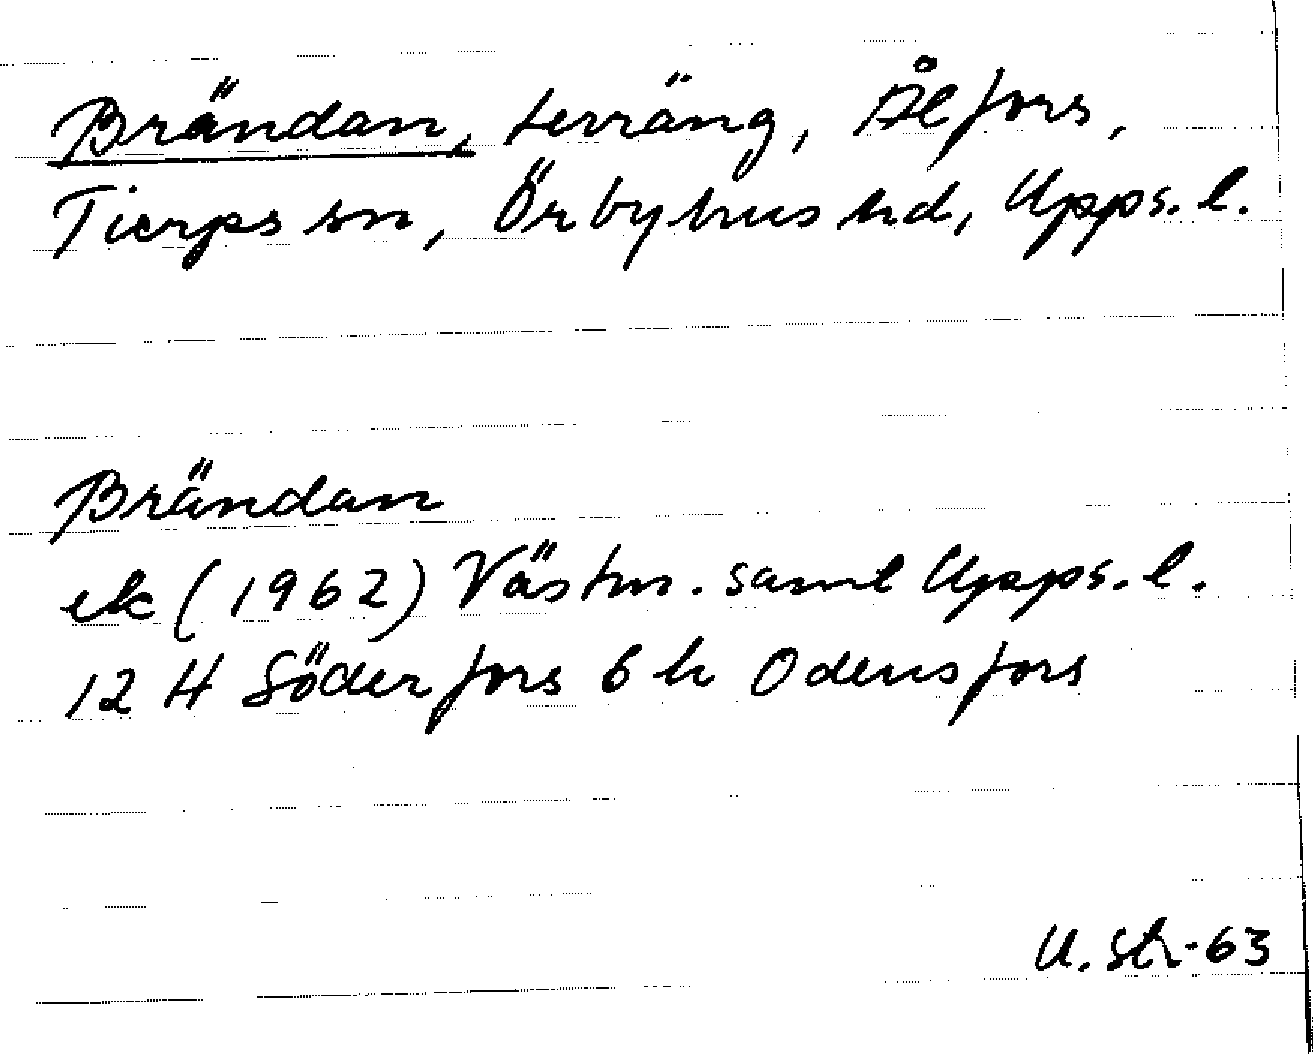 Brändan, terräng, Ålfors,
Tierps sn, Örbyhus hd, Upps. l.
Brändan
ek (1962) Västm. saml Upps. l.
12 H Söderfors 6 h Odensfors
U. Str-63